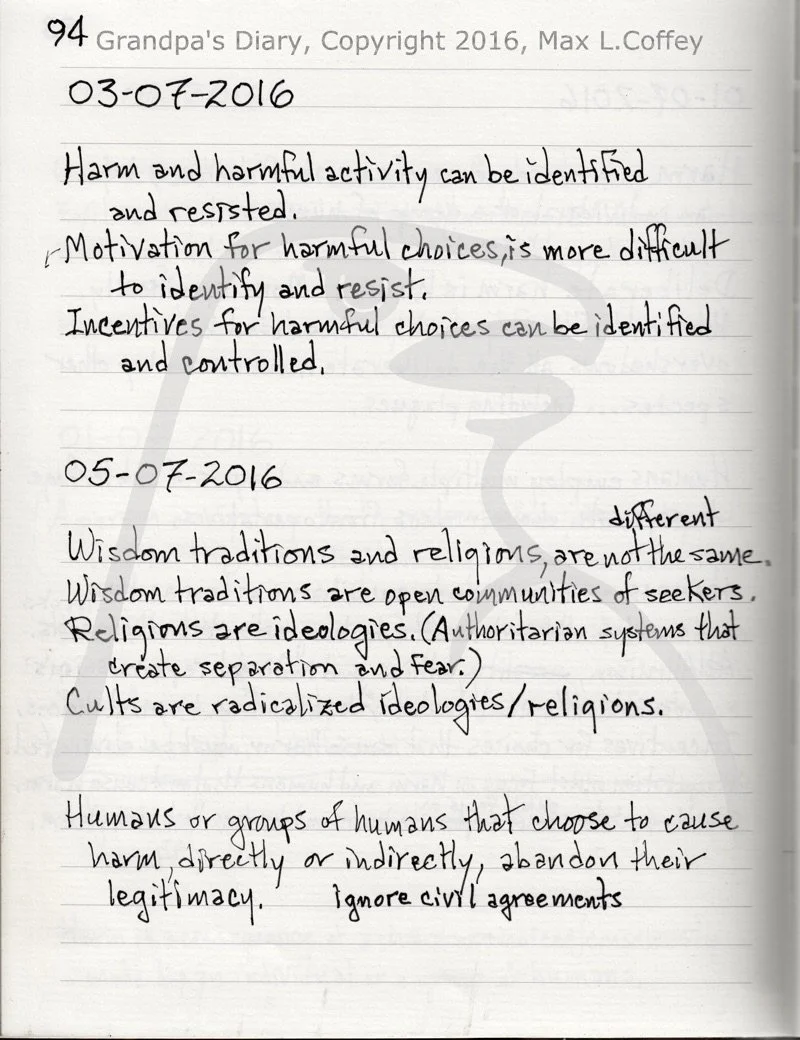 94 Grandpa's Diary, Copyright 2016, Max L.Coffey
03-07-2016
Harm and harmful activity can be identified
and resisted.
Motivation for harmful choices, is more difficult
to identify and resist.
Incentives for harmful choices can be identified
and controlled.
05-07-2016
different
Wisdom traditions and religions, are not the same.
Wisdom traditions are open communities of seekers.
Religions are ideologies. (Authoritarian systems that
create separation and fear.)
Cults are radicalized ideologies/religions.
Humans or groups of humans that choose to cause
harm, directly or indirectly, abandon their
legitimacy. ignore civil agreements